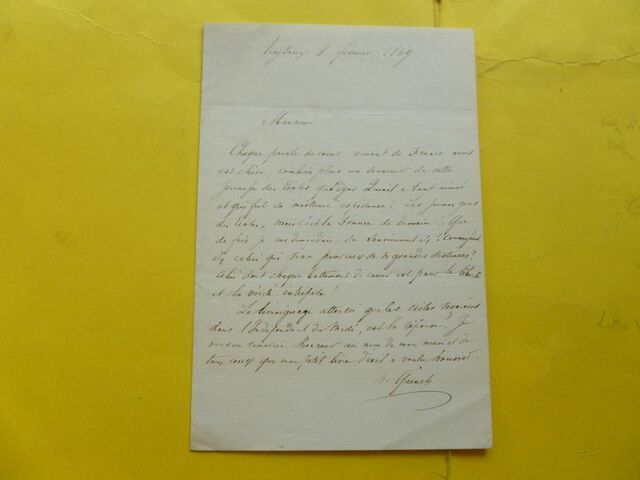 Veytaux 8 février 1869
Monsieur
Chaque parole de coeur venant de France nous
est chère; combien plus un souvenir de cette
jeunesse des Ecoles qu'Edgar Quinet a tant aimé
et qui fut sa meilleure espérance! Les jeunes gens
des Ecoles, mais c'est la France de demain! Que
de fois je me demandais: Se souviennent-ils?
celui qui pour eux de si grandes destinées?
Celui dont chaque battement de coeur est pour la liberté
et la vérité intrépide?
Le témoignage que les
dans l'Indépendant du Midi, est la réponse. Je
vous en remercie Monsieur au nom de mon mari et de
tous ceux que mon petit livre d'exil a voulu honorer.
Quinet